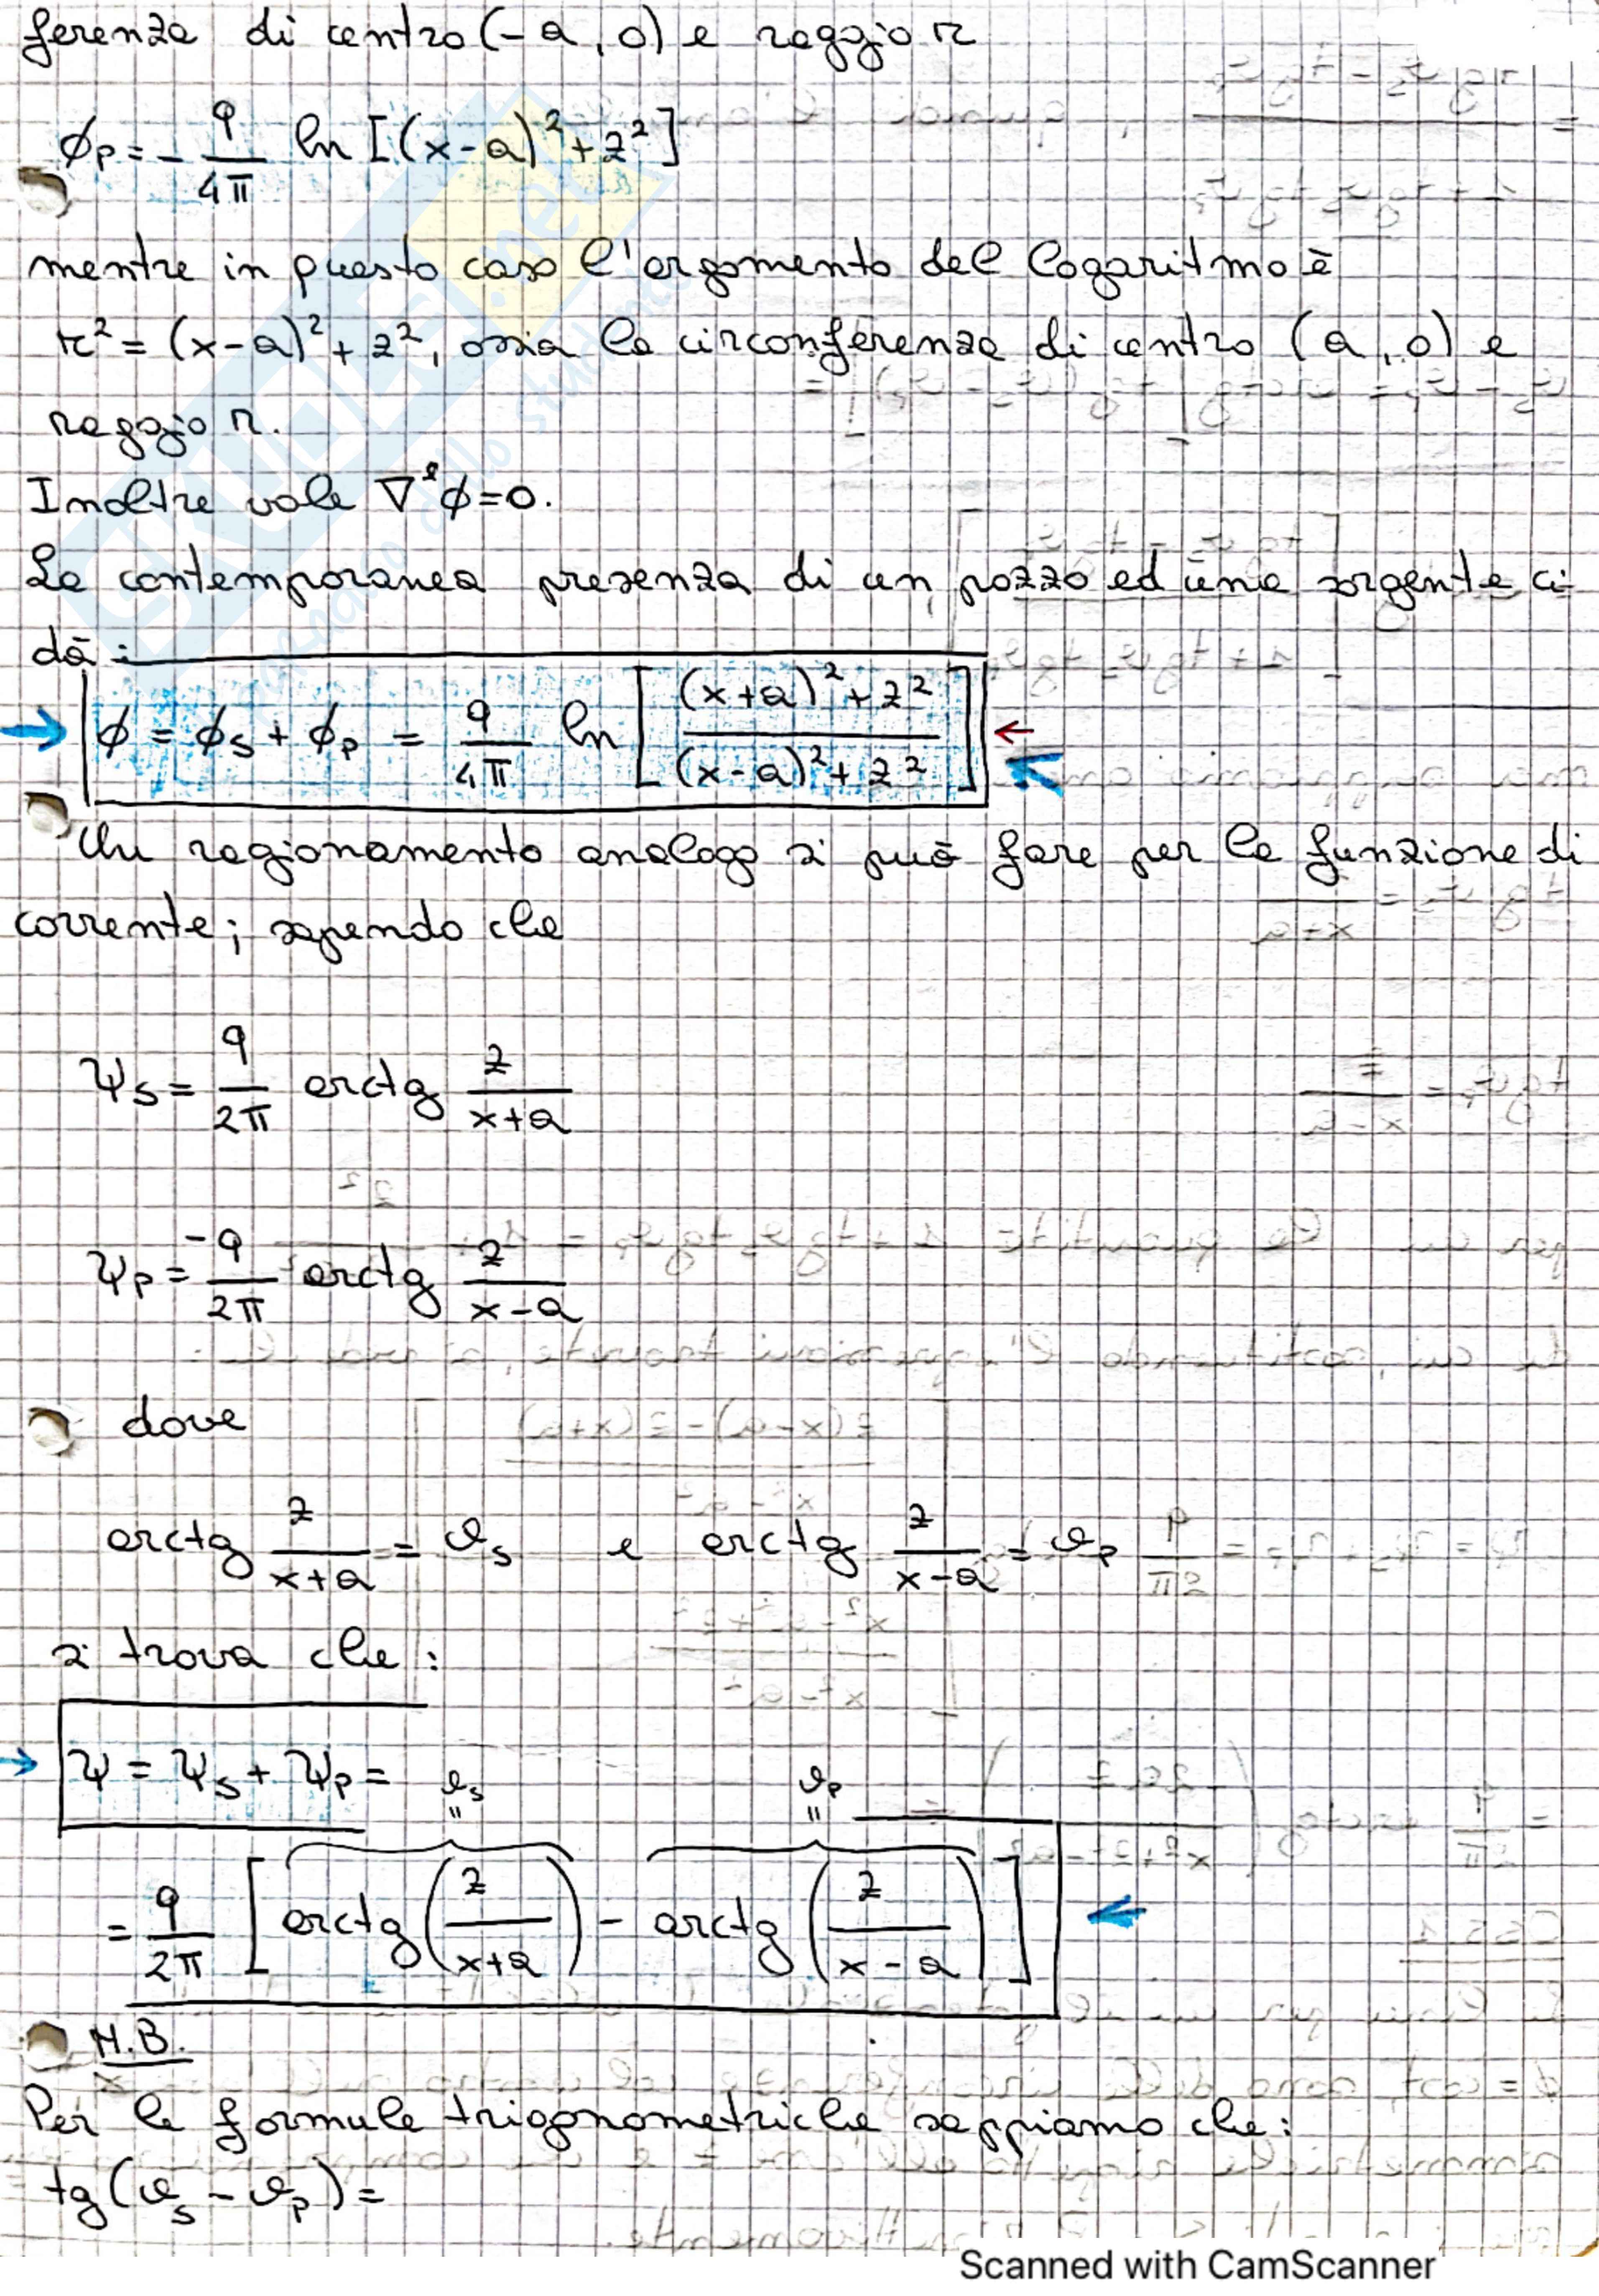 ferenza di centro (-a, 0) e raggio r
ϕp = - q/4π ln [(x-a)² + z²]
mentre in questo caso l'argomento del logaritmo è
r² = (x-a)² + z², ossia la circonferenza di centro (a, 0) e
raggio r.
Inoltre vale ∇²ϕ=0.
La contemporanea presenza di un pozzo ed una sorgente ci
dà:
→ ϕ = ϕs + ϕp = q/4π ln [((x+a)² + z²)/((x-a)² + z²)] ←
Un ragionamento analogo si può fare per la funzione di
corrente; sapendo che
ψs = q/2π arctg z/(x+a)
ψp = -q/2π arctg z/(x-a)
dove
arctg z/(x+a) = ϑs e arctg z/(x-a) = ϑp
si trova che:
→ ψ = ψs + ψp =
ϑs ϑp
= q/2π [arctg(z/(x+a)) - arctg(z/(x-a))] ←
N.B.
Per le formule trigonometriche sappiamo che:
tg(ϑs - ϑp) =
SKUOLA.net
paradiso dello studente
Scanned with CamScanner